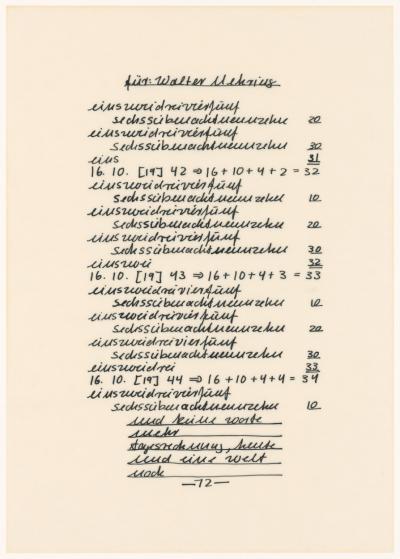 für: Walter Mehring
einszweidreivierfünf
sechssiebenachtneunzehn 20
einszweidreivierfünf
sechssiebenachtneunzehn 30
eins 31
16. 10. [19] 42 ⇒ 16 + 10 + 4 + 2 = 32
einszweidreivierfünf
sechssiebenachtneunzehn 10
einszweidreivierfünf
sechssiebenachtneunzehn 20
einszweidreivierfünf
sechssiebenachtneunzehn 30
einszwei 32
16. 10. [19] 43 ⇒ 16 + 10 + 4 + 3 = 33
einszweidreivierfünf
sechssiebenachtneunzehn 10
einszweidreivierfünf
sechssiebenachtneunzehn 20
einszweidreivierfünf
sechssiebenachtneunzehn 30
einszweidrei 33
16. 10. [19] 44 ⇒ 16 + 10 + 4 + 4 = 34
einszweidreivierfünf
sechssiebenachtneunzehn 10
und keine worte
mehr
tagesrechnung, heute
und eine welt
noch
—72—